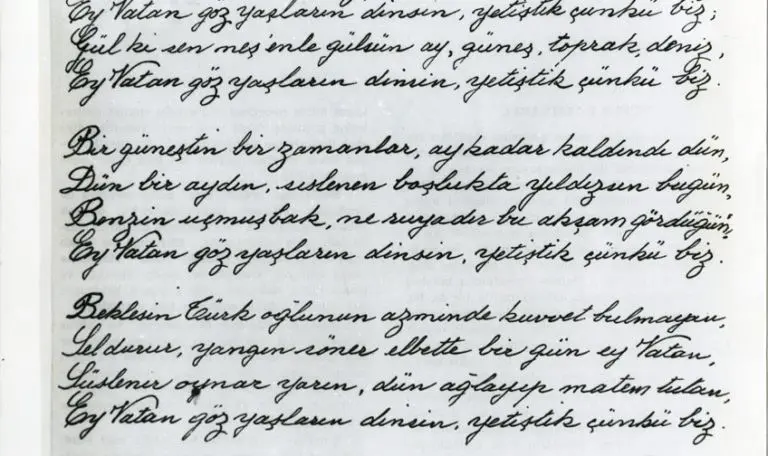 Ey Vatan göz yaşların dinsin, yetiştik çünkü biz;
Gül ki sen neş'enle gülsün ay, güneş, toprak, deniz,
Ey Vatan göz yaşların dinsin, yetiştik çünkü biz.
Bir güneştin bir zamanlar, aykadar kaldındı dün,
Dün bir aydın, sislenen boşlukta yıldızsın bugün,
Benzin uçmuş bak, ne ruyadır bu akşam gördüğün,
Ey Vatan göz yaşların dinsin, yetiştik çünkü biz.
Beklesin Türk oğlunun azminde kuvvet bulmayan,
Sel durur, yangın söner elbette bir gün ey Vatan,
Süslenir oynar yarın, dün ağlayıp matem tutan,
Ey Vatan göz yaşların dinsin, yetiştik çünkü biz.